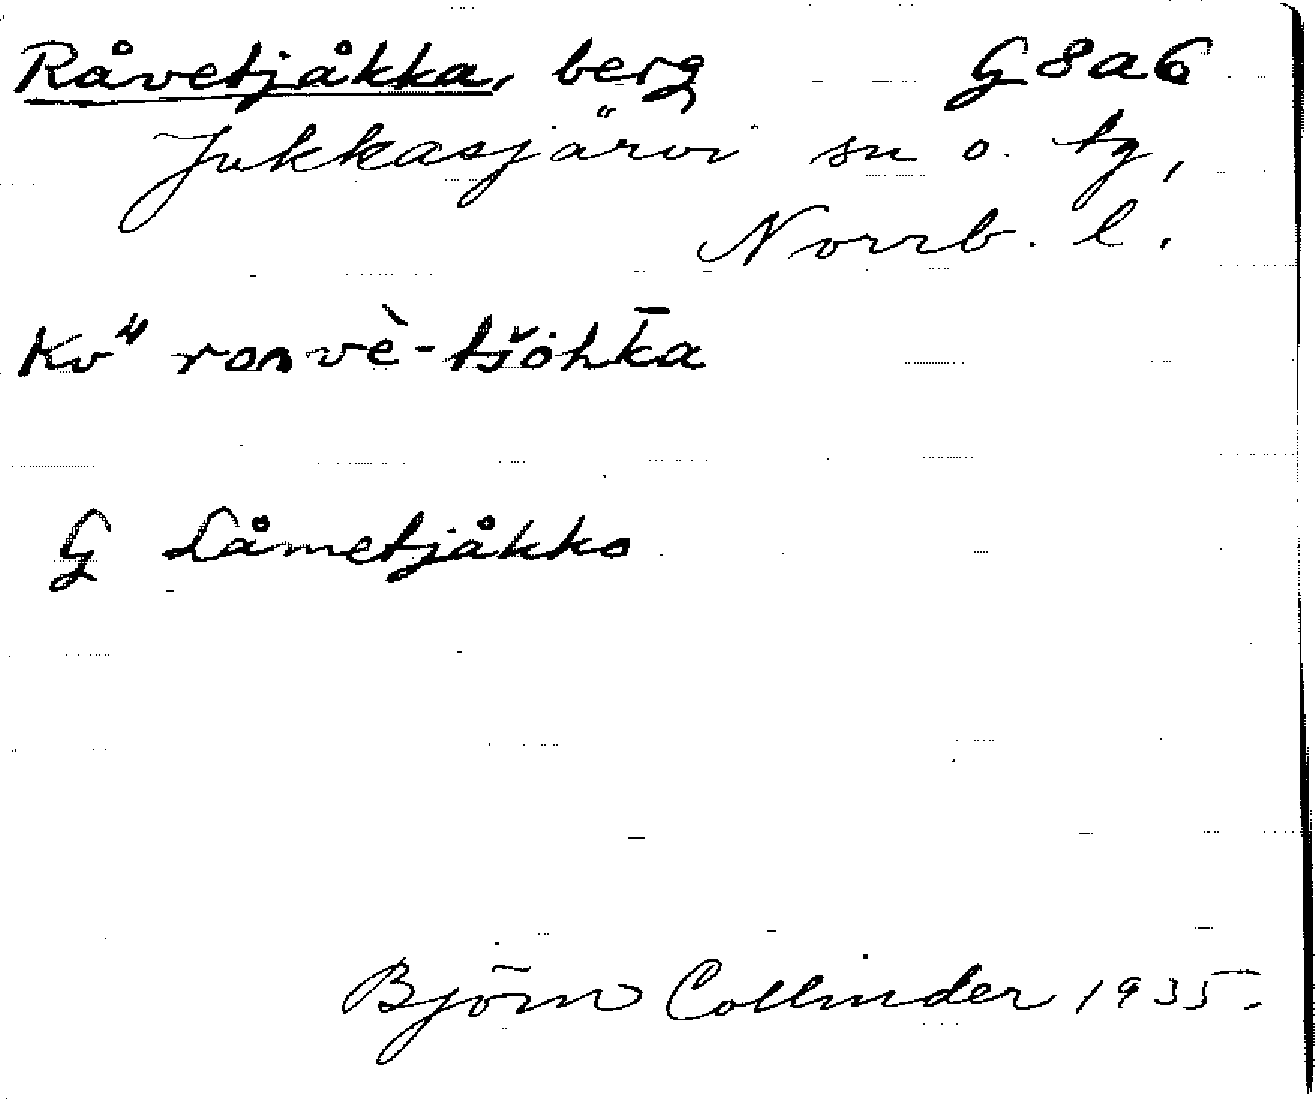 Råvetjåkka, berg G8a6
Jukkasjärvi sn o. tg,
Norrb. l.
Kv" roavè-tšòhk̄a
G Låmetjåkko
Björn Collinder 1935.